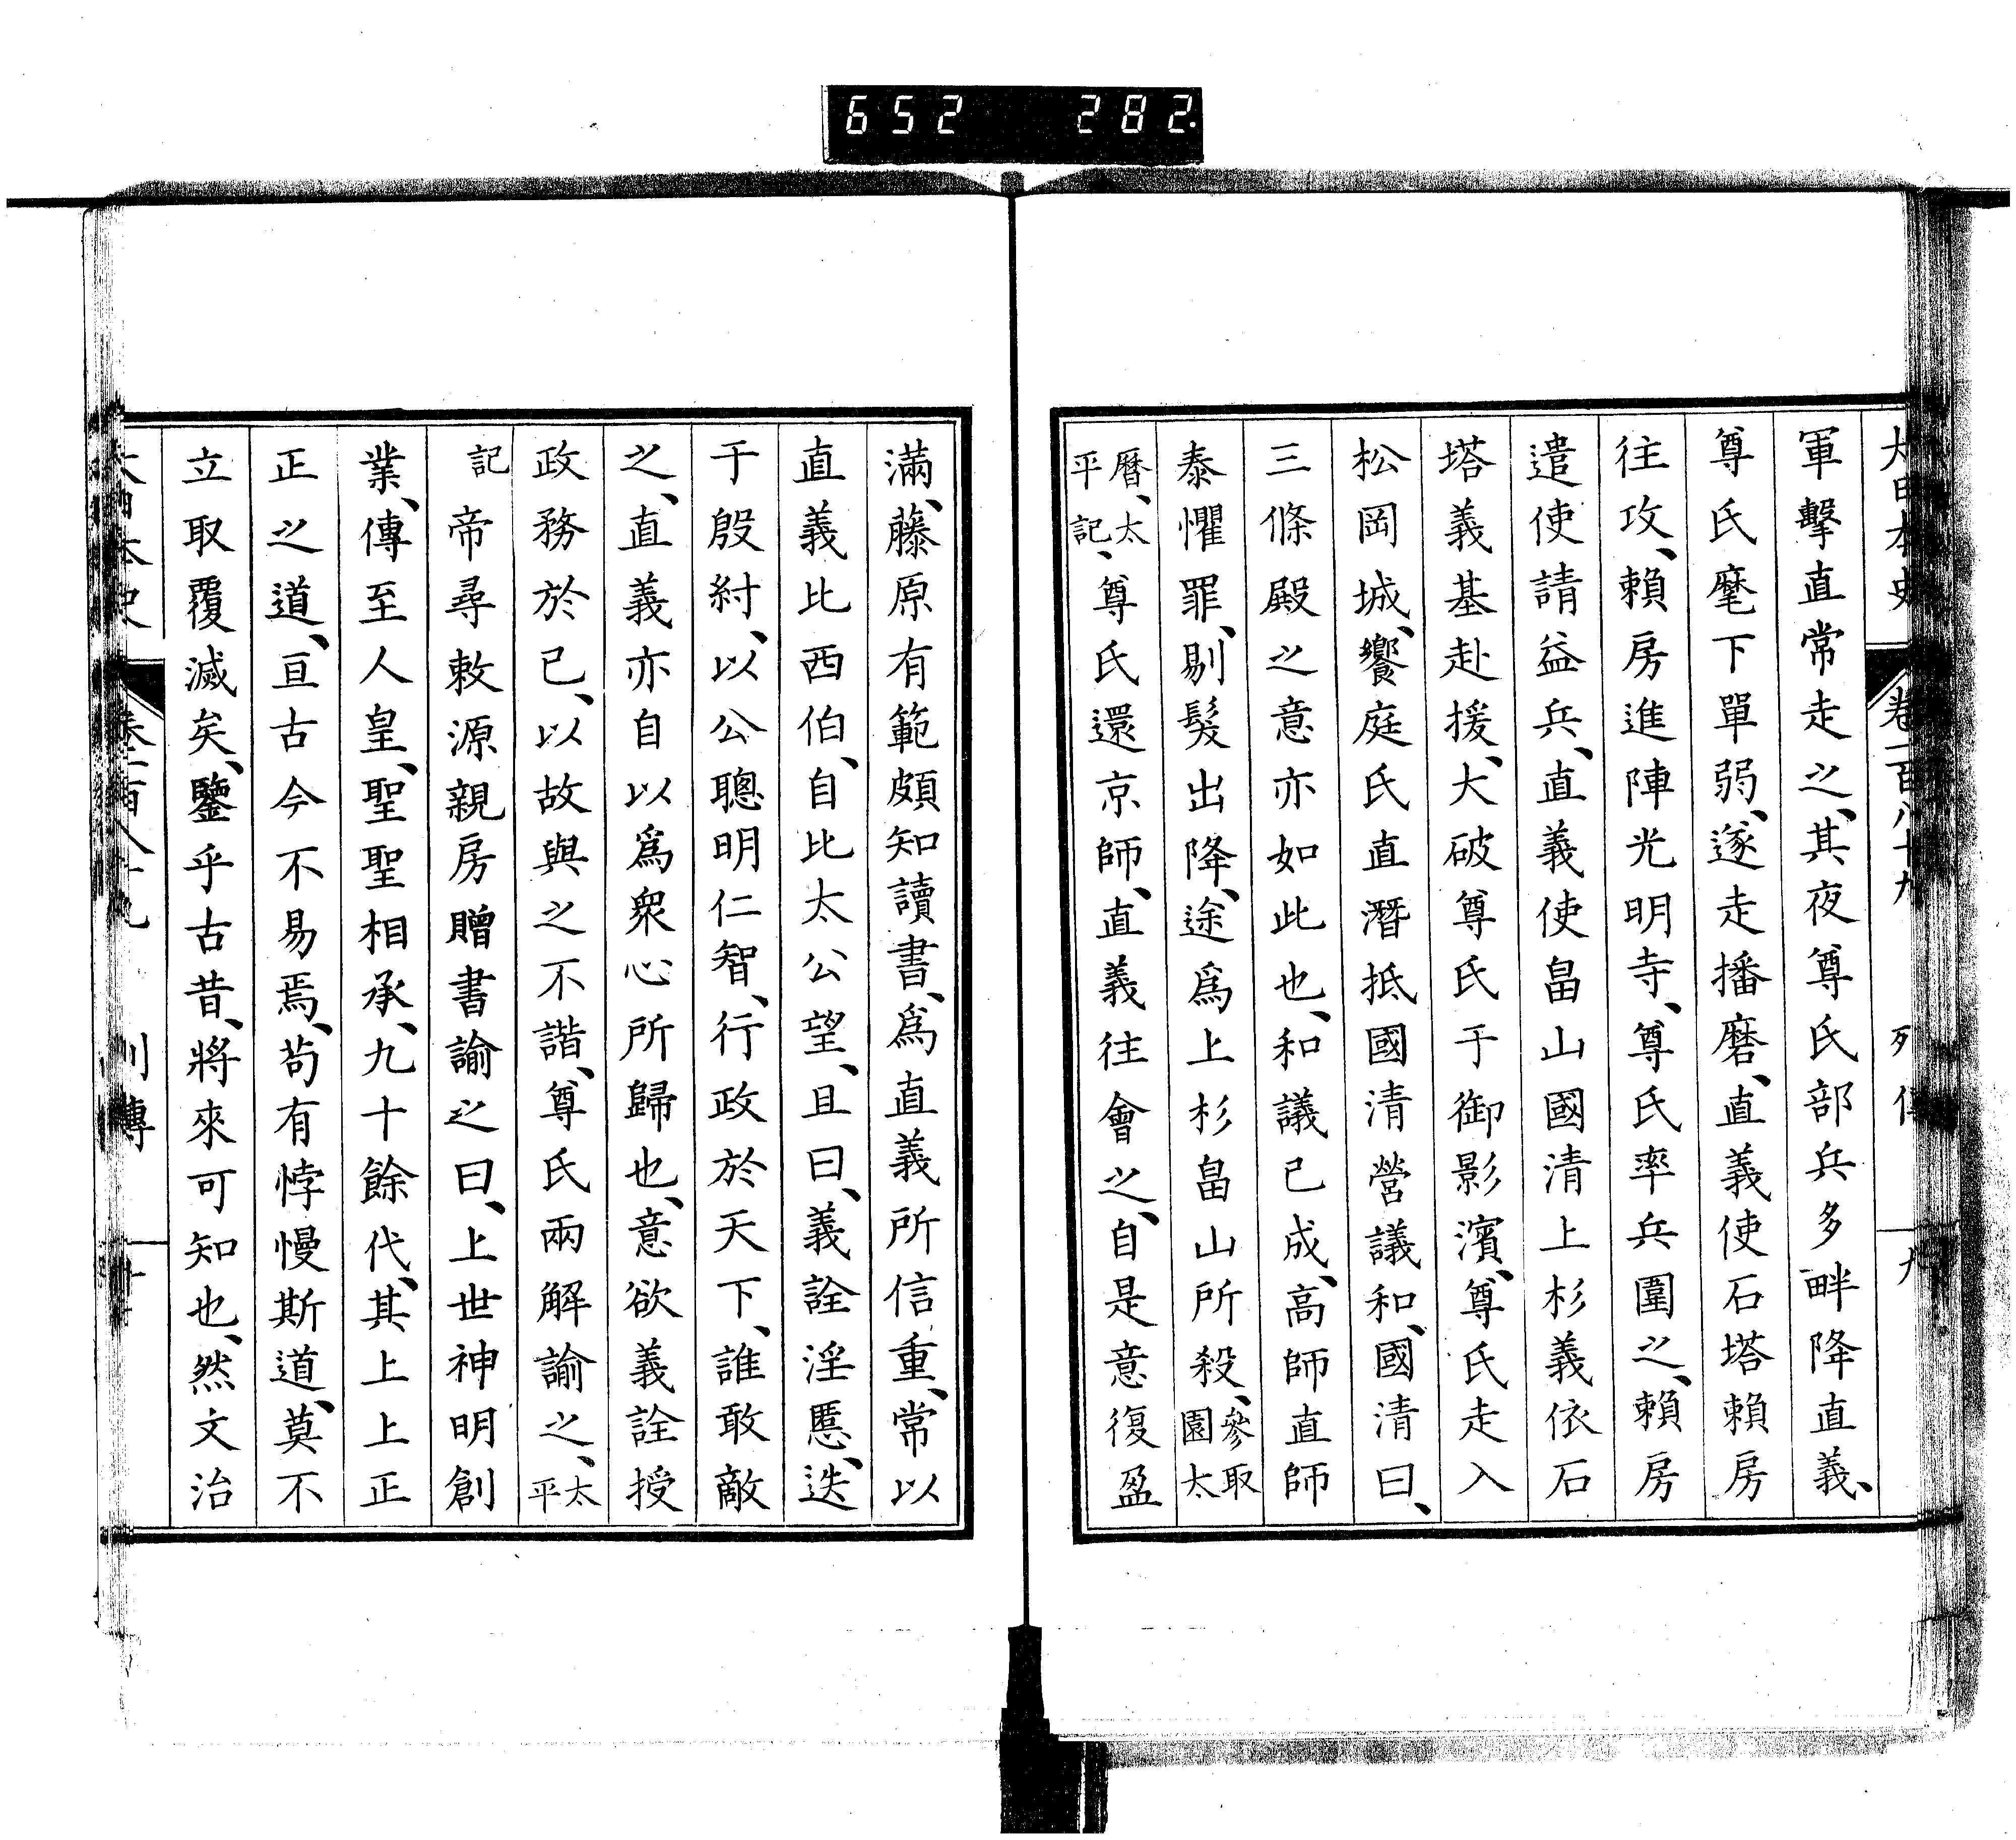 652 282.
大日本史 卷一百八十九 列傳 九
軍擊直常走之、其夜尊氏部兵多畔降直義、
尊氏麾下單弱、遂走播磨、直義使石塔賴房
往攻、賴房進陣光明寺、尊氏率兵圍之、賴房
遣使請益兵、直義使畠山國清上杉義依石
塔義基赴援、大破尊氏于御影濱、尊氏走入
松岡城、饗庭氏直潛抵國清營議和、國清曰、
三條殿之意亦如此也、和議已成、高師直師
泰懼罪、剔髮出降、途爲上杉畠山所殺、參取園太
曆、太平記、尊氏還京師、直義往會之、自是意復盈
滿、藤原有範頗知讀書、爲直義所信重、常以
直義比西伯、自比太公望、且曰、義詮淫慝、迭
于殷紂、以公聰明仁智、行政於天下、誰敢敵
之、直義亦自以爲衆心所歸也、意欲義詮授
政務於已、以故與之不諧、尊氏兩解諭之、太平
記帝尋敕源親房贈書諭之曰、上世神明創
業、傳至人皇、聖聖相承、九十餘代、其上上正
正之道、亘古今不易焉、苟有悖慢斯道、莫不
立取覆滅矣、鑒乎古昔、將來可知也、然文治
大日本史 卷一百八十九 列傳 十